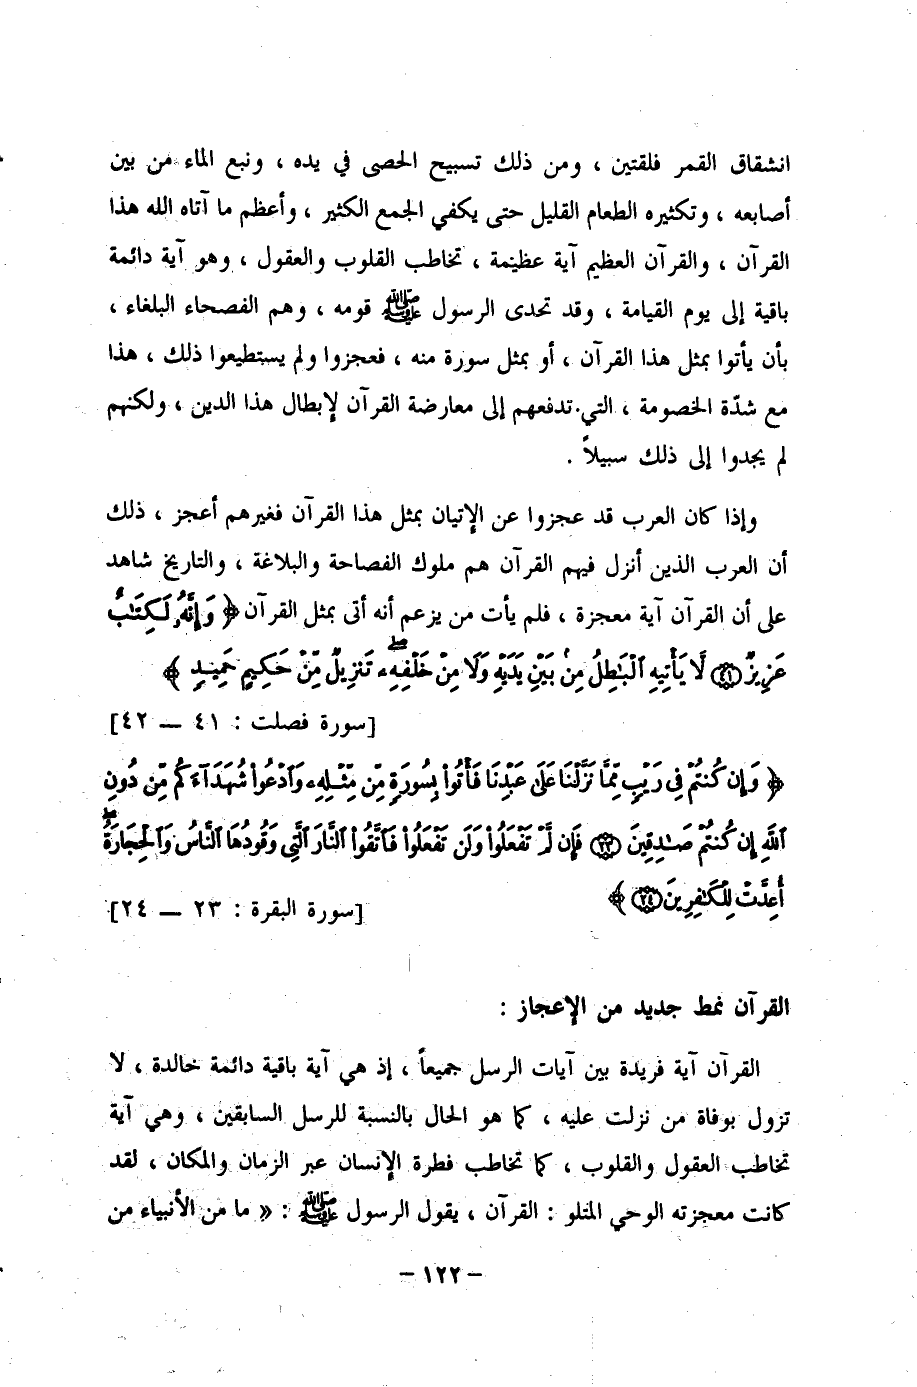 انشقاق القمر فلقتين ، ومن ذلك تسبيح الحصى في يده ، ونبع الماء من بين
أصابعه ، وتكثيره الطعام القليل حتى يكفي الجمع الكثير ، وأعظم ما آتاه الله هذا
القرآن ، والقرآن العظيم آية عظيمة ، تخاطب القلوب والعقول ، وهو آية دائمة
باقية إلى يوم القيامة ، وقد تحدى الرسول ﷺ قومه ، وهم الفصحاء البلغاء ،
بأن يأتوا بمثل هذا القرآن ، أو بمثل سورة منه ، فعجزوا ولم يستطيعوا ذلك ، هذا
مع شدّة الخصومة ، التي تدفعهم إلى معارضة القرآن لإبطال هذا الدين ، ولكنهم
لم يجدوا إلى ذلك سبيلاً .
وإذا كان العرب قد عجزوا عن الإتيان بمثل هذا القرآن فغيرهم أعجز ، ذلك
أن العرب الذين أنزل فيهم القرآن هم ملوك الفصاحة والبلاغة ، والتاريخ شاهد
على أن القرآن آية معجزة ، فلم يأت من يزعم أنه أتى بمثل القرآن ﴿ وَإِنَّهُۥ لَكِتَٰبٌ
عَزِيزٌ ٤١ لَّا يَأْتِيهِ ٱلْبَٰطِلُ مِنۢ بَيْنِ يَدَيْهِ وَلَا مِنْ خَلْفِهِۦۖ تَنزِيلٌ مِّنْ حَكِيمٍ حَمِيدٍ ﴾
[سورة فصلت : ٤١ — ٤٢]
﴿ وَإِن كُنتُمْ فِى رَيْبٍ مِّمَّا نَزَّلْنَا عَلَىٰ عَبْدِنَا فَأْتُوا۟ بِسُورَةٍ مِّن مِّثْلِهِۦ وَٱدْعُوا۟ شُهَدَآءَكُم مِّن دُونِ
ٱللَّهِ إِن كُنتُمْ صَٰدِقِينَ ٢٣ فَإِن لَّمْ تَفْعَلُوا۟ وَلَن تَفْعَلُوا۟ فَٱتَّقُوا۟ ٱلنَّارَ ٱلَّتِى وَقُودُهَا ٱلنَّاسُ وَٱلْحِجَارَةُۖ
أُعِدَّتْ لِلْكَٰفِرِينَ ٢٤ ﴾
[سورة البقرة : ٢٣ — ٢٤]
القرآن نمط جديد من الإعجاز :
القرآن آية فريدة بين آيات الرسل جميعاً ، إذ هي آية باقية دائمة خالدة ، لا
تزول بوفاة من نزلت عليه ، كما هو الحال بالنسبة للرسل السابقين ، وهي آية
تخاطب العقول والقلوب ، كما تخاطب فطرة الإنسان عبر الزمان والمكان ، لقد
كانت معجزته الوحي المتلو : القرآن ، يقول الرسول ﷺ : « ما من الأنبياء من
– ١٢٢ –